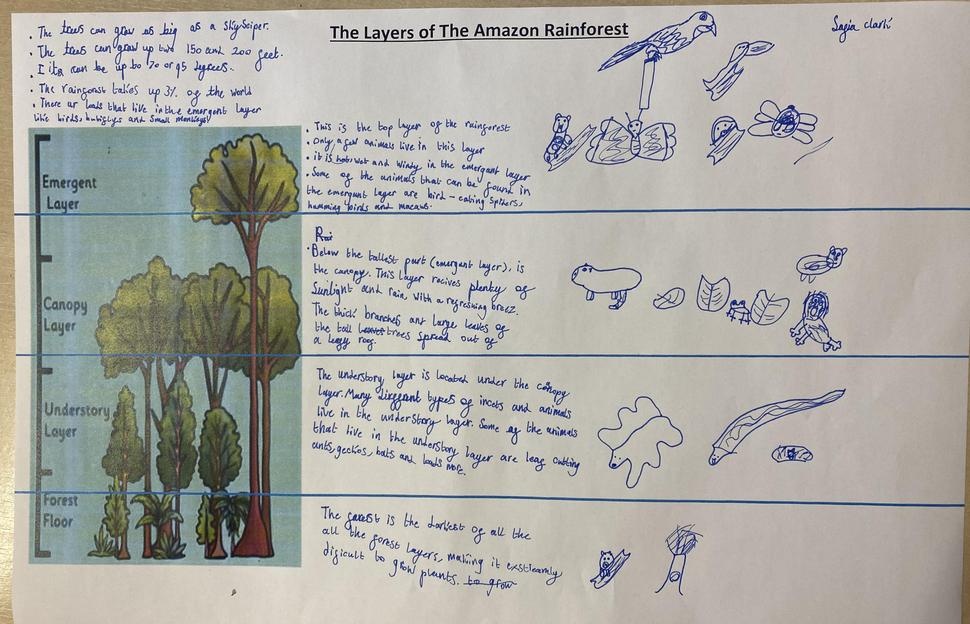 The Layers of The Amazon Rainforest
• The trees can grow as big as a Skyskiper.
• The trees can grow up two 150 and 200 feet.
• I its can be up to 70 or 95 degrees.
• The rainforest takes up 3% of the world
• There ur loads that live in the emergent layer
like birds, and small monkeys
• This is the top layer of the rainforest
• Only a few animals live in this layer
• it is hot, wet and windy in the emergent layer
• Some of the animals that can be found in
the emergent layer are bird-eating spiders,
humming birds and macaws.
Emergent
Layer
Rai
• Below the tallest part (emergent layer), is
the canopy. This Layer recives plenty of
Sunlight and rain, with a refreshing breez.
The thick branches and large leaves of
the tall leaves trees spread out of
a leafy roof.
Canopy
Layer
The understory layer is located under the canopy
layer. Many diffrent types of incets and animals
live in the understory layer. Some of the animals
that live in the understory layer are leaf cutting
ants, geckos, bats and loads more.
Understory
Layer
The forest is the darkest of all the
all the forest layers, making it exstreamly
dificult to grow plants. to grow
Forest
Floor